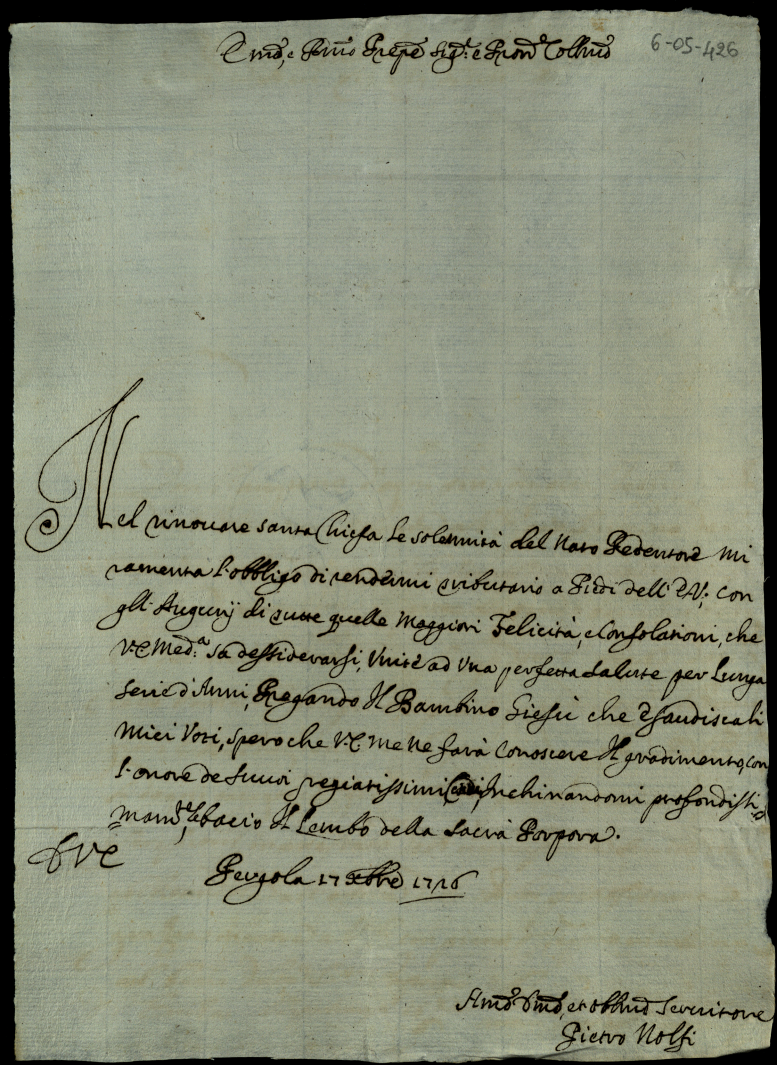 Em̃o, e Rm̃o Prñpe Sig.r e Pron̄ Collm̃o
6-05-426
Nel rinouare santa Chiesa le solennità del Nato Redentore mi
ramenta l'obbligo di rendermi tributario a Piedi dell' E.V., con
gli Augurij di tutte quelle maggiori Felicità, e Consolationi, che
V.E. Med.a sà dessiderarsi, Vnite ad vna perfetta salute per lunga
serie d'Anni, Pregando Il Bambino Giesù che Esaudisca li
miei Voti, spero che V.E. me ne farà conoscere Il gradimento, con
l'onore de suoi pregiatissimi Inchinandomi profondissi=
=mam.te, bacio Il Lembo della Sacra Porpora.
D V E
Pergola 17 Xbre 1726
Um̃o Dm̃o, et obblm̃o Seruitore
Pietro Nolfi